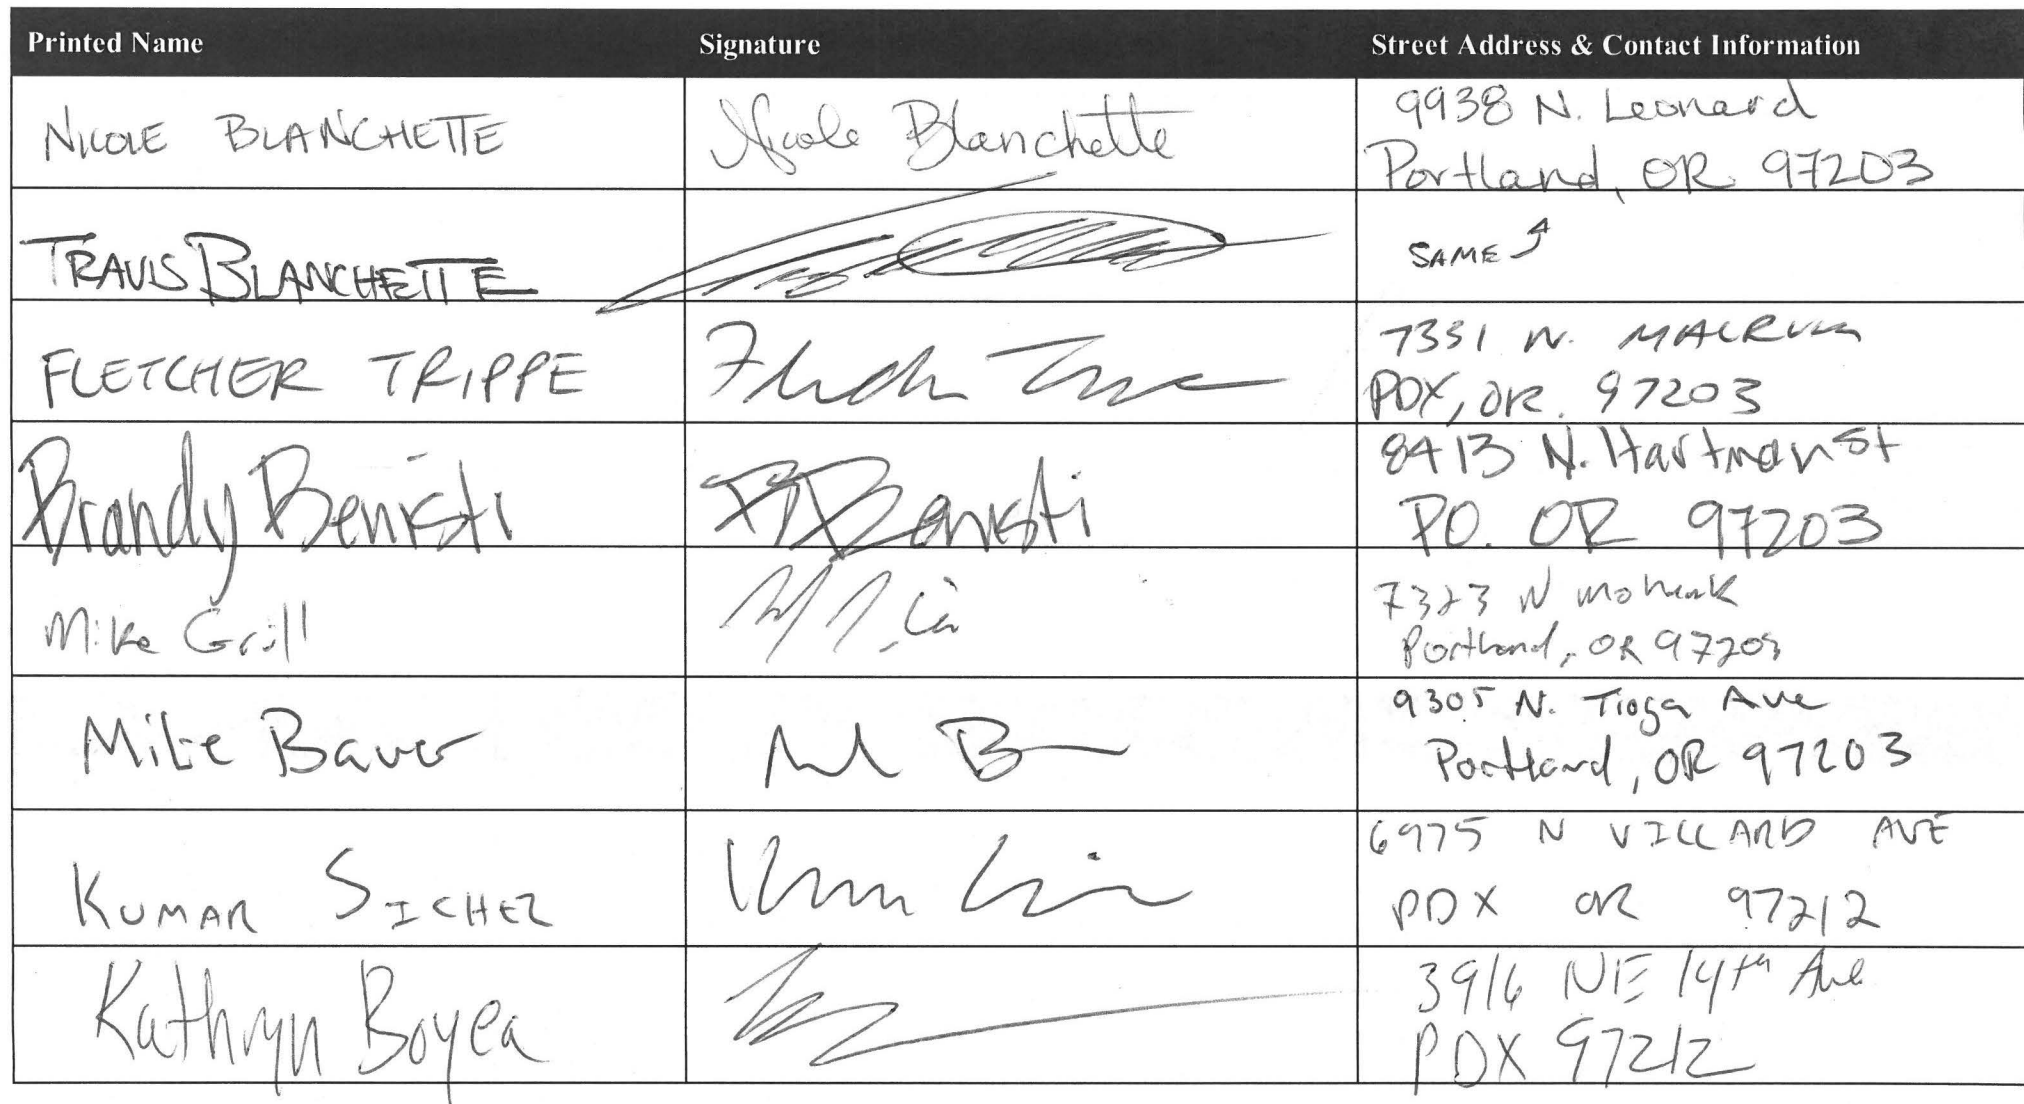 Printed Name Signature Street Address & Contact Information
NICOLE BLANCHETTE Nicole Blanchette 9938 N. Leonard
Portland, OR 97203
TRAVIS BLANCHETTE SAME
FLETCHER TRIPPE 7331 N.
PDX, OR. 97203
Brandy Benisti B Benisti 8413 N. Hartman St
PO. OR 97203
Mike Grill 7323 N Mohawk
Portland, OR 97203
Mike Bauer 9305 N. Tioga Ave
Portland, OR 97203
KUMAR 6975 N VILLARD AVE
PDX OR 97212
Kathryn Boyea 3916 NE 14th Ave
PDX 97212